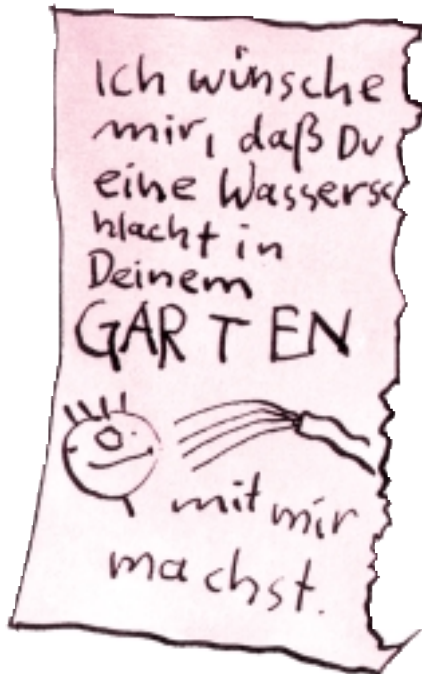 Ich wünsche
mir, daß Du
eine Wassersc
hlacht in
Deinem
GARTEN
mit mir
machst.